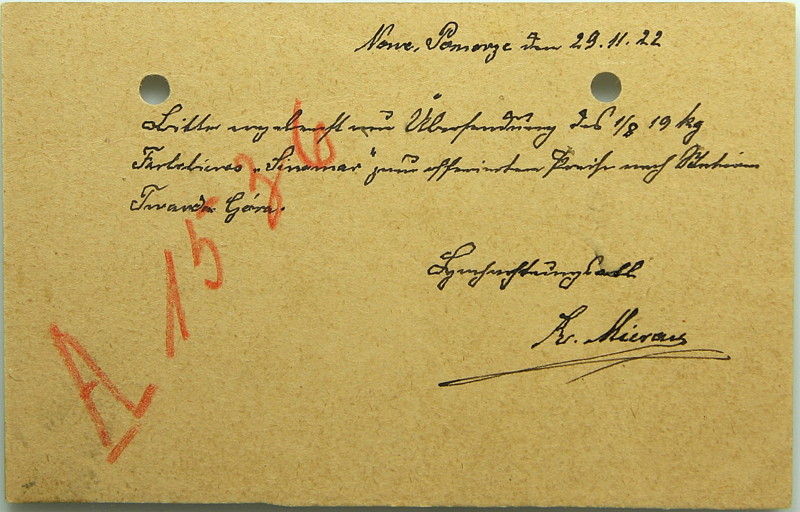 Nowe, Pomorze den 29.11.22
Bitte ergebenst um Übersendung des 1/2 19 kg
"Sinomar" zum offerierten Preise nach Station
Twarda Góra.
Hochachtungsvoll
Fr. Mierau
A 1536